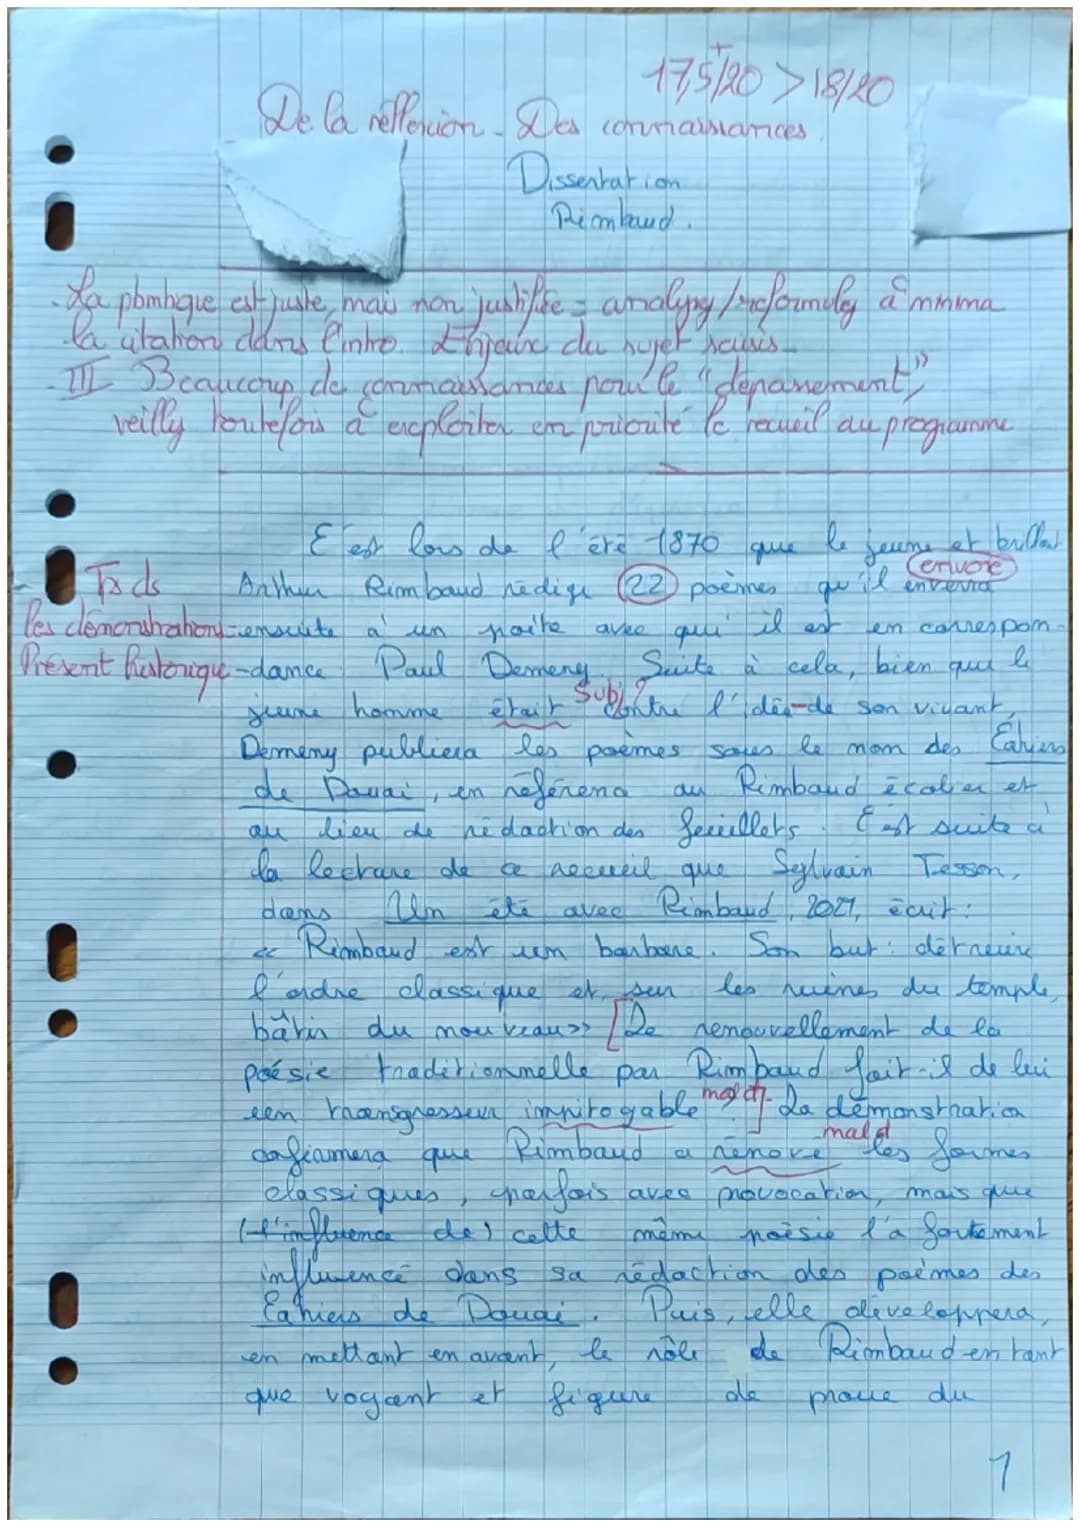 17,5⁺/20 > 18/20
De la réflexion - Des connaissances.
Dissertation
Rimbaud.
- La pbmtique est juste, mais non justifiée = analysez/reformulez a minima
la citation dans l'intro. Enjeux du sujet saisis -
- III Beaucoup de connaissances pour le "dépassement",
veillez toutefois à exploiter en priorité le recueil au programme
C'est lors de l'été 1870 que le jeune et brillant
Tb ds
les démonstrations
Présent historique
envoie
Arthur Rimbaud rédige 22 poèmes qu'il enverra
ensuite à un poète avec qui il est en correspon-
-dance Paul Demeny. Suite à cela, bien que le
Subj?
jeune homme était contre l'idée de son vivant,
Demeny publiera les poèmes sous le nom des Cahiers
de Douai, en référence au Rimbaud écolier et
au lieu de rédaction des feuillets. C'est suite à
la lecture de ce recueil que Sylvain Tesson,
dans Un été avec Rimbaud, 2021, écrit:
<< Rimbaud est un barbare. Son but: détruire
l'ordre classique et, sur les ruines du temple,
bâtir du nouveau>> [Le renouvellement de la
poésie traditionnelle par Rimbaud fait-il de lui
un transgresseur impitoyable mal dt ?] La démonstration
confirmera que Rimbaud a rénové mal dt les formes
classiques, parfois avec provocation, mais que
(l'influence de) cette même poésie l'a fortement
influencé dans sa rédaction des poèmes des
Cahiers de Douai. Puis, elle développera,
en mettant en avant, le rôle de Rimbaud en tant
que voyant et figure de proue du
1